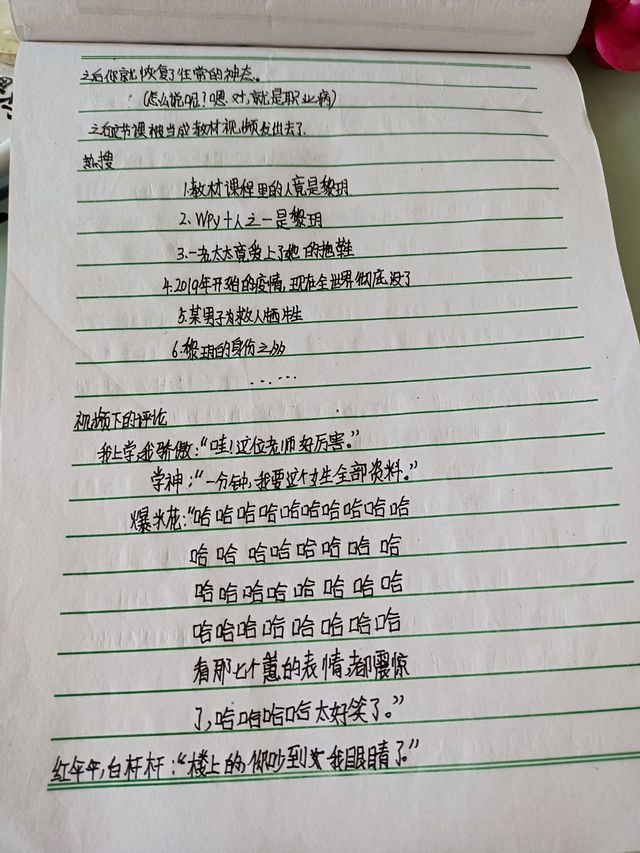 之后你就恢复了往常的神态。
(怎么说呢?嗯.对,就是职业病)
之后这节课被当成教材视频发出去了.
热搜
1.教材课程里的人竟是黎玥
2、WPy十人之一是黎玥
3.一老太太竟爱上了她的拖鞋
4.2019年开始的疫情,现在全世界彻底没了
5.某男子为救人牺牲
6.黎玥的身份之多
......
视频下的评论
我上学,我骄傲:“哇!这位老师好厉害。”
学神:“一分钟,我要这个女生全部资料。”
爆米花:“哈哈哈哈哈哈哈哈哈哈
哈哈哈哈哈哈哈哈
哈哈哈哈哈哈哈哈
哈哈哈哈哈哈哈哈
看那七个的表情,都震惊
了,哈哈哈哈太好笑了。”
红伞伞,白杆杆:“楼上的,你吵到我眼睛了。”